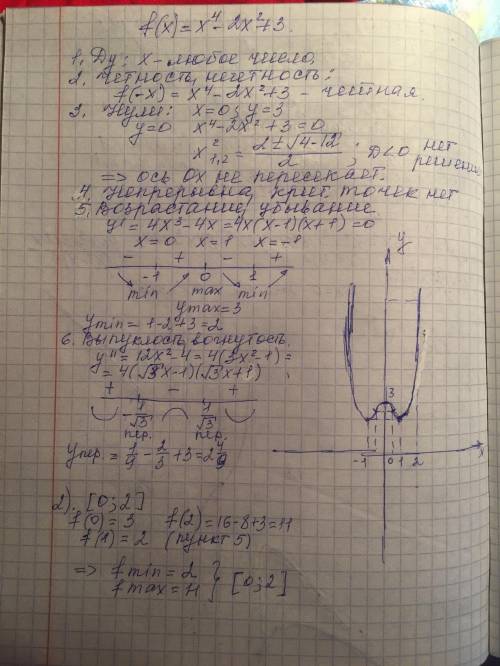 f(x) = x⁴ - 2x² + 3.
1. Ду: x - любое число.
2. Четность, нечетность:
f(-x) = x⁴ - 2x² + 3 - четная.
3. Нули: x=0; y=3
y=0 x⁴ - 2x² + 3 = 0
x²₁,₂ = (2 ± √4-12)/2 ; D<0 нет решение
=> ось Ox не пересекает.
4. Непрерывна, крит. точек нет
5. Возрастание, убывание
y' = 4x³ - 4x = 4x(x-1)(x+1) = 0
x=0 x=1 x=-1
- + - +
-1 0 1
min max min
ymax = 3
ymin = 1-2+3 = 2
6. Выпуклость, вогнутость.
y'' = 12x² - 4 = 4(3x²-1) =
= 4(√3x-1)(√3x+1)
+ - +
-1/√3 1/√3
пер. пер.
yпер. = 1/9 - 2/3 + 3 = 2 4/9
y
3
-1 0 1 2 x
2). [0;2]
f(0) = 3 f(2) = 16-8+3 = 11
f(1) = 2 (пункт 5)
=> fmin = 2
fmax = 11 } [0;2]